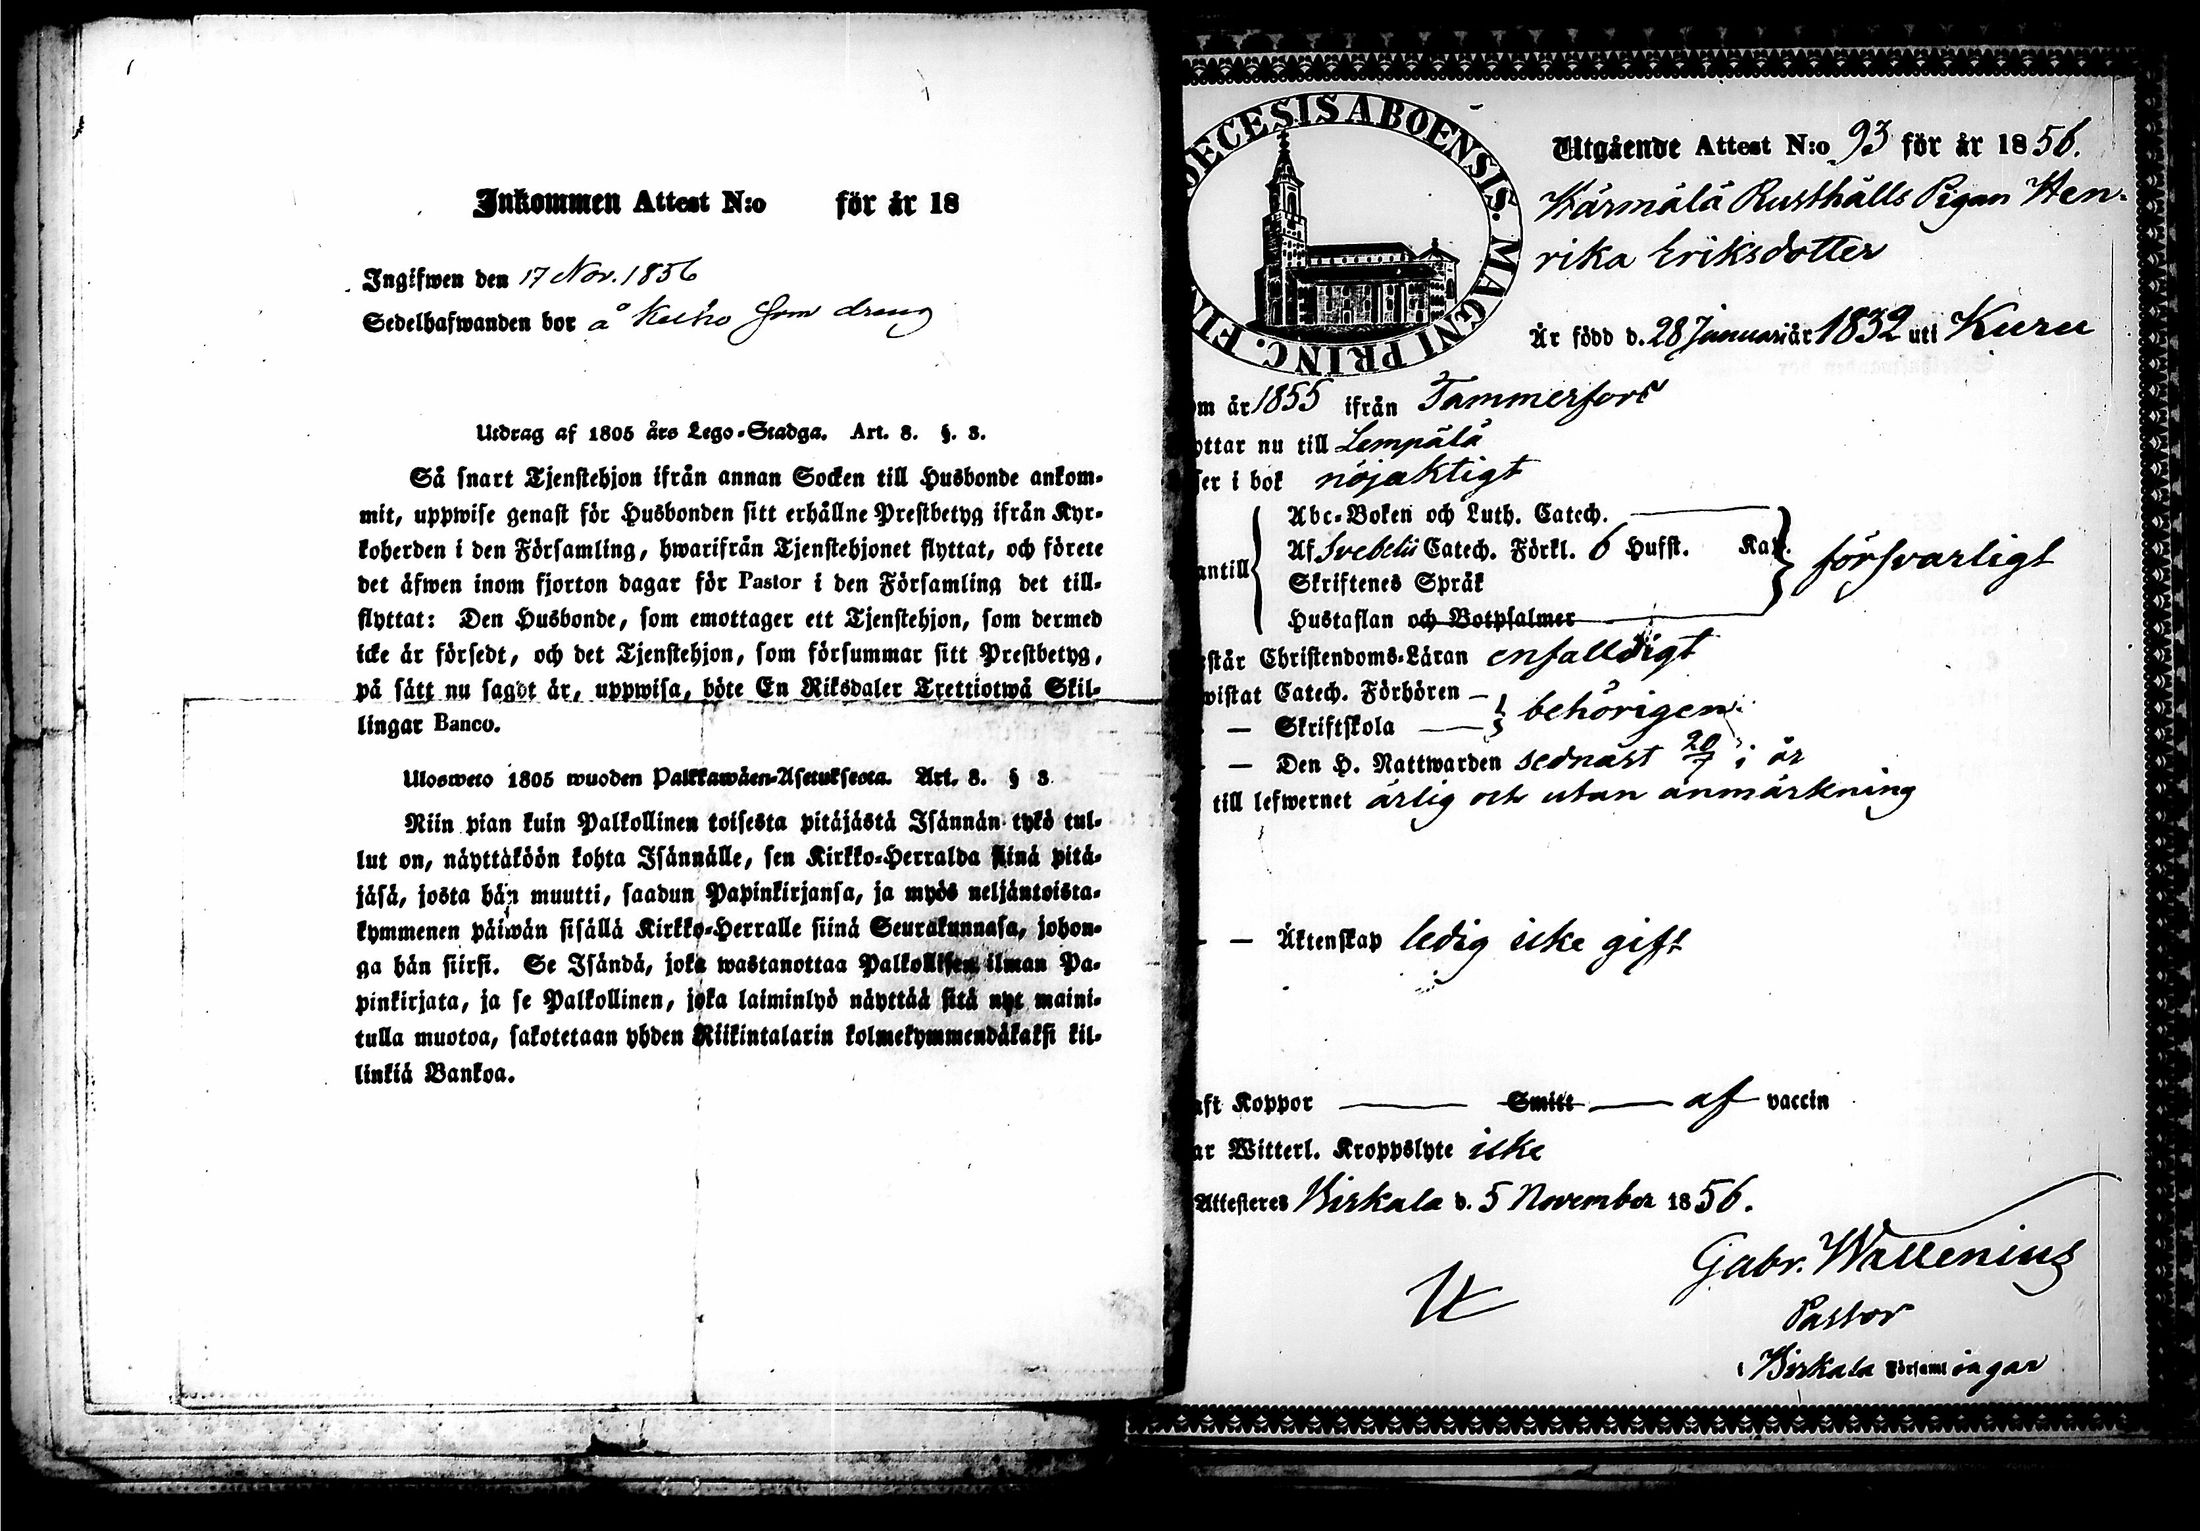 Inkommen Attest N:o för år 18
Ingifwen den 17 Nov. 1856
Sedelhafwanden bor å Keiho som dreng
Utdrag af 1805 års Lego-Stadga. Art. 8. §. 3.
Så snart Tjenstehjon ifrån annan Socken till Husbonde ankom-
mit, uppwise genast för Husbonden sitt erhållne Prestbetyg ifrån Kyr-
koherden i den Församling, hwarifrån Tjenstehjonet flyttat, och förete
det äfwen inom fjorton dagar för Pastor i den Församling det till-
flyttat: Den Husbonde, som emottager ett Tjenstehjon, som dermed
icke är försedt, och det Tjenstehjon, som försummar sitt Prestbetyg,
på sätt nu sagdt är, uppwisa, böte En Riksdaler Trettiotwå Skil-
lingar Banco.
Ulosweto 1805 wuoden Palkkawäen-Asetuksesta. Art. 8. § 3
Niin pian kuin Palkollinen toisesta pitäjästä Isännän tykö tul-
lut on, näyttäköön kohta Isännälle, sen Kirkko-Herralda siinä pitä-
jäsä, josta hän muutti, saadun Papinkirjansa, ja myös neljäntoista-
kymmenen päiwän sisällä Kirkko-Herralle siinä Seurakunnasa, johon-
ga hän siirsi. Se Isändä, joka wastanottaa Palkollisen ilman Pa-
pinkirjata, ja se Palkollinen, joka laiminlyö näyttää sitä nyt maini-
tulla muotoa, sakotetaan yhden Riikintalarin kolmekymmendäkaksi kil-
linkiä Bankoa.
OECESIS ABOENSIS. MAGNI PRINC. FIN
Utgående Attest N:o 93 för år 1856.
Kärmälä Rusthålls Pigan Hen-
rika Eriksdotter
Är född d. 28 Januari år 1832 uti Kuru
om år 1855 ifrån Tammerfors
yttar nu till Lempälä
ser i bok nöjaktigt
Abc-Boken och Luth. Catech.
antill Af Svebelii Catech. Förkl. 6 Hufst. Kap. försvarligt
Skriftenes Språk
Hustaflan och Botpsalmer
står Christendoms-Läran enfalldigt
wistat Catech. Förhören – behörigen
– Skriftskola —
– Den H. Nattwarden sednast 20/7 i år
till lefwernet ärlig och utan anmärkning
– – Äktenskap ledig icke gift
aft Koppor — Smitt — af vaccin
ar Witterl. Kroppslyte icke
Attesteres Birkala d. 5 November 1856.
Gabr. Wallenius
Pastor
i Birkala Församlingar